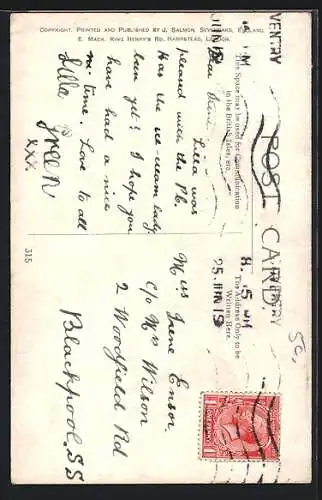 COPYRIGHT. PRINTED AND PUBLISHED BY J. SALMON, SEVENOAKS, ENGLAND.
E. MACK, KING HENRY'S RD. HAMPSTEAD, LONDON.
POST CARD.
This Space may be used for Communication
in the British Isles, etc.
The Address Only to be
Written Here.
Dear Irene. Lila was
pleased with the P.C.
Has the ice-cream lady
been yet? I hope you
have had a nice
time. Love to all
Lilla
Green
xxx.
Miss Irene Ensor.
c/o Mrs Wilson
2 Woodfield Rd
Blackpool. SS
315
COVENTRY
8. 15 PM
25 JUN 19